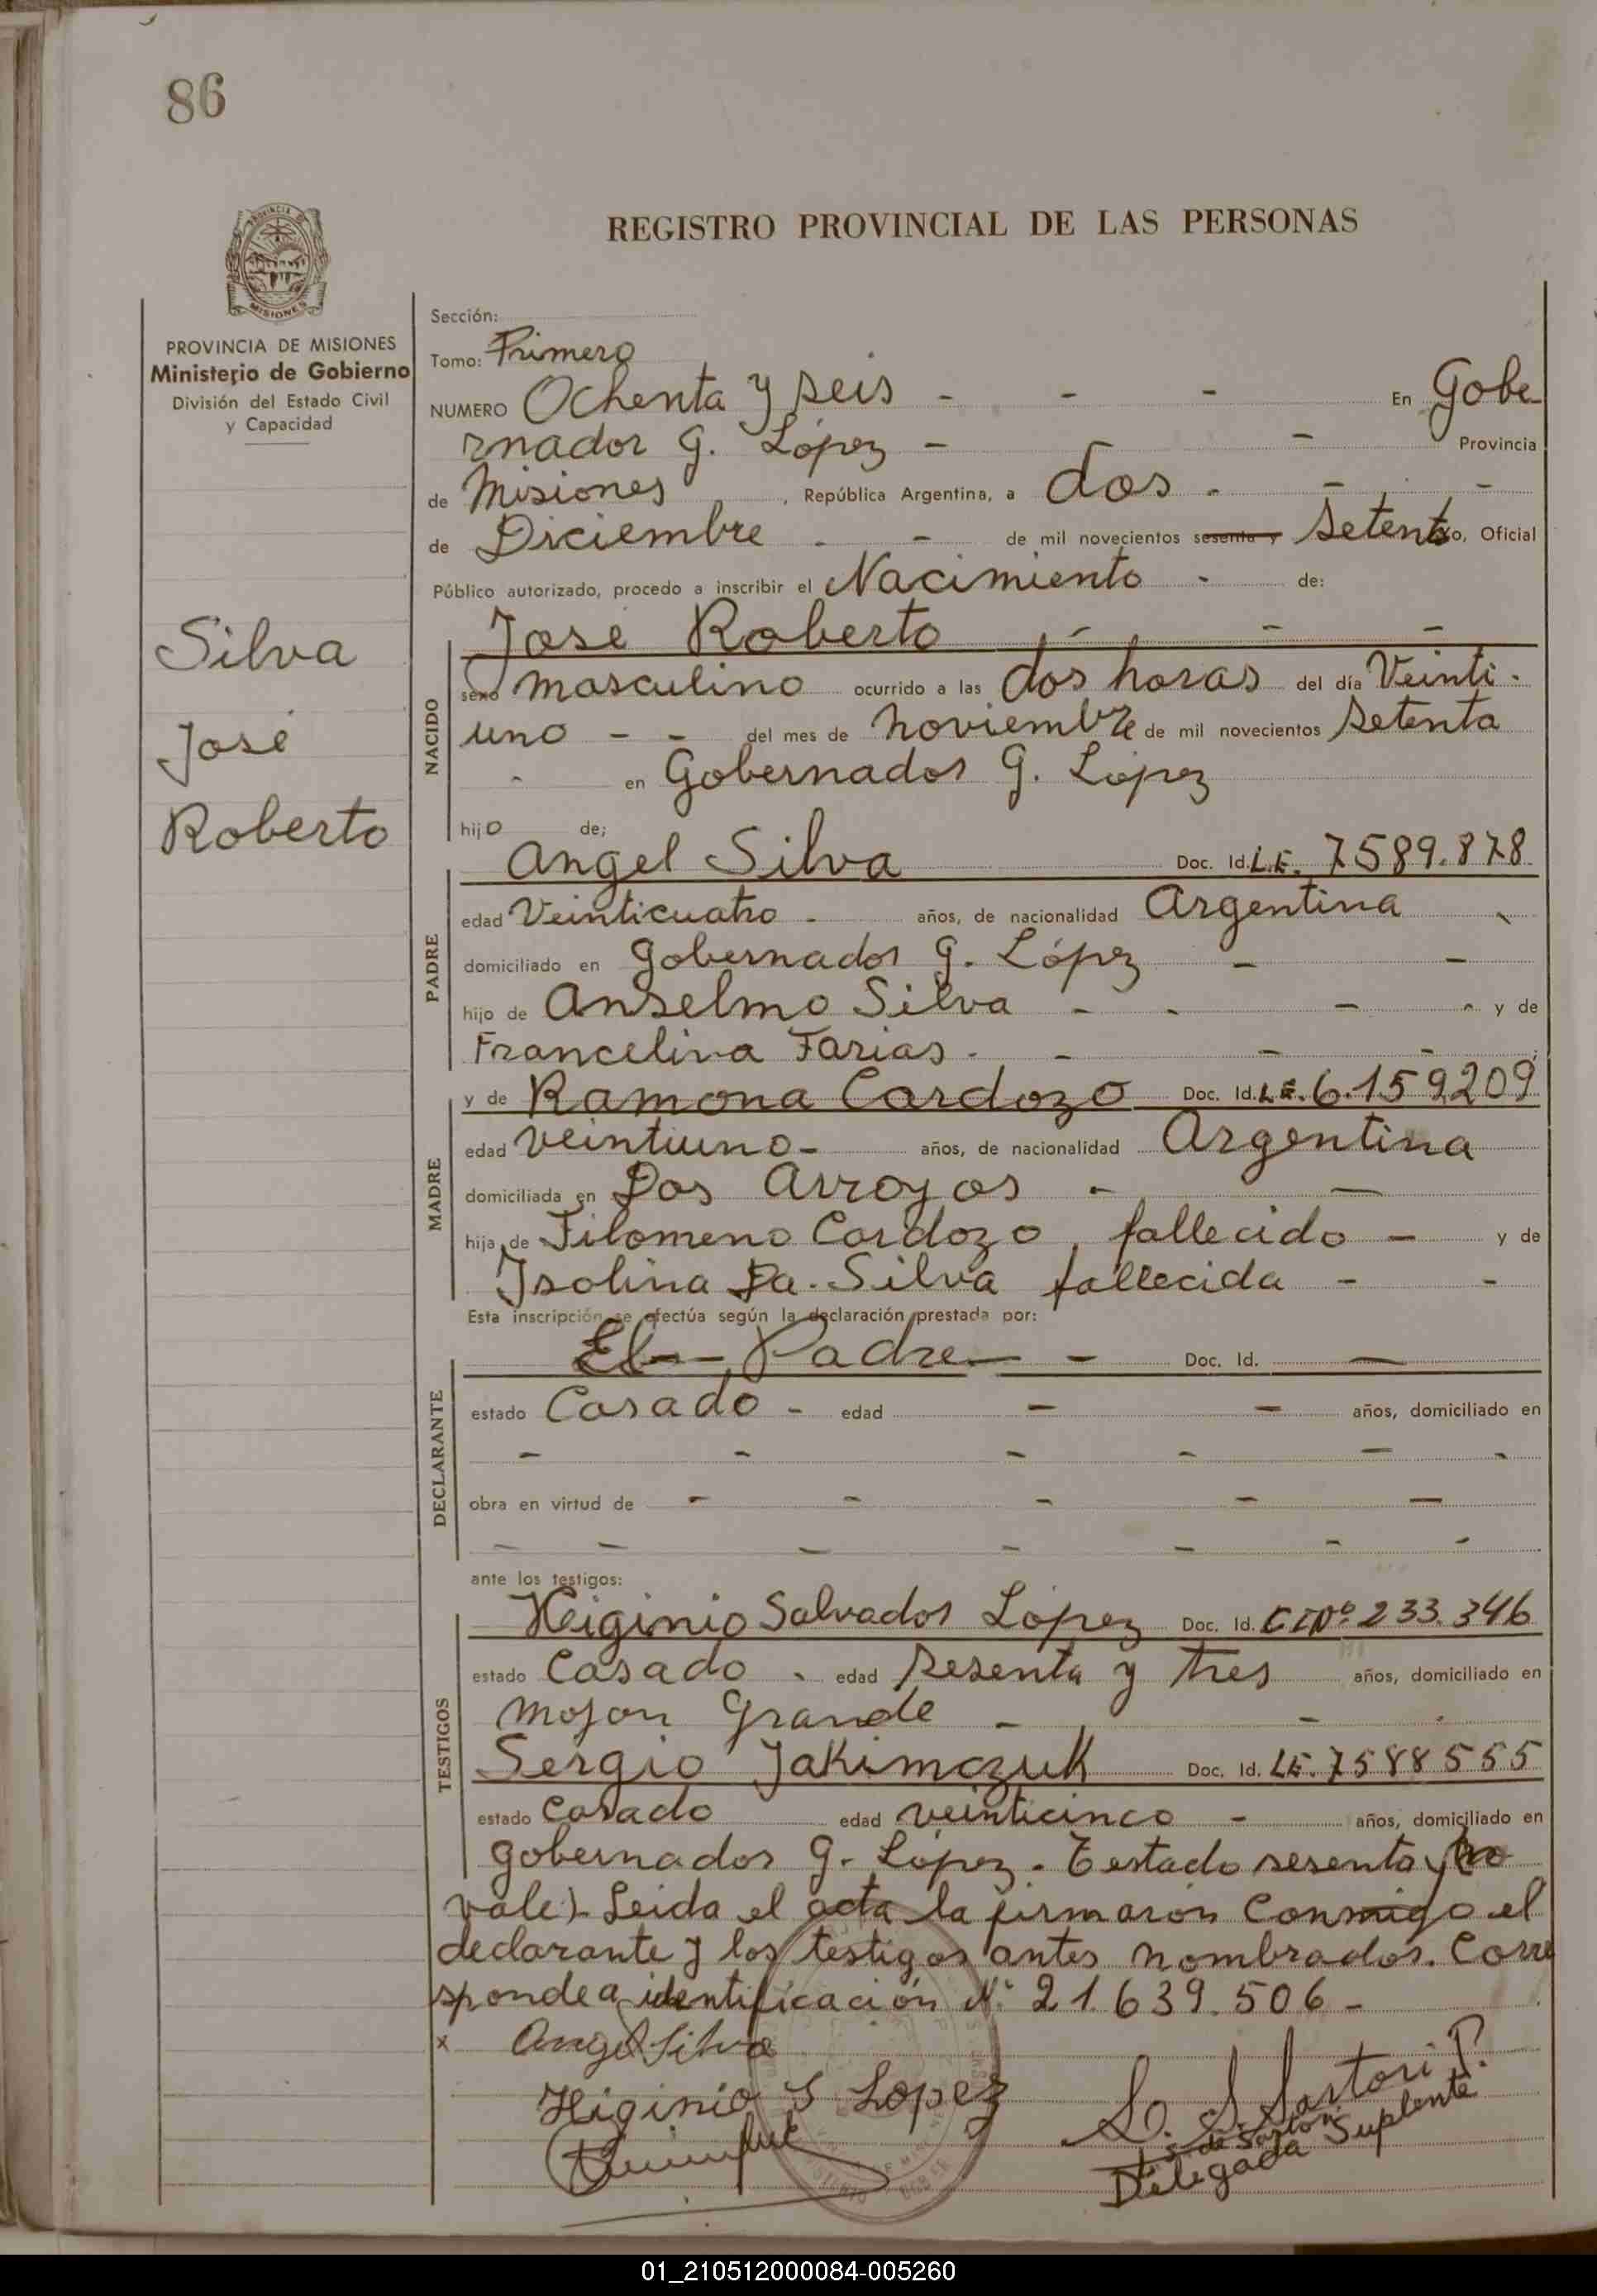 86
REGISTRO PROVINCIAL DE LAS PERSONAS
MISIONES
PROVINCIA DE MISIONES
Ministerio de Gobierno
División del Estado Civil
y Capacidad
Silva
José
Roberto
Sección:
Tomo: Primero
NUMERO Ochenta y seis - - - En Gobe
rnador G. López - - Provincia
de Misiones, República Argentina, a dos - - -
de Diciembre - - de mil novecientos sesenta y Setenta yo, Oficial
Público autorizado, procedo a inscribir el Nacimiento - de:
NACIDO
José Roberto - - -
sexo masculino ocurrido a las dos horas del día Veinti -
uno - - del mes de noviembre de mil novecientos setenta
- en Gobernador G. López
hijo de;
PADRE
Angel Silva Doc. Id. L.E. 7589.878
edad Veinticuatro - años, de nacionalidad Argentina -
domiciliado en Gobernador G. López - -
hijo de Anselmo Silva - - - - y de
Francelina Farias - - - -;
MADRE
y de Ramona Cardozo Doc. Id. L.E. 6.159.209
edad veintiuno - años, de nacionalidad Argentina
domiciliada en Dos Arroyos - -
hija de Filomeno Cardozo, fallecido - y de
Isolina Da. Silva fallecida - -
Esta inscripción se efectúa según la declaración prestada por:
DECLARANTE
El - Padre - - Doc. Id. -
estado Casado - edad - - años, domiciliado en
- - - - - -
obra en virtud de - - - - -
- - - - - - -
ante los testigos:
TESTIGOS
Higinio Salvador López Doc. Id. C I Nº 233.346
estado Casado - edad sesenta y tres años, domiciliado en
Mojon Grande - - -
Sergio Jakimczuk Doc. Id. L.E. 7588555
estado casado edad veinticinco - años, domiciliado en
Gobernador G. López. Testado sesenta y (no
vale). Leida el acta la firmaron conmigo el
declarante y los testigos antes nombrados. Corre
sponde a identificación Nº 21.639.506 -
x Angel Silva
Higinio S Lopez
S. Sartori P.
S. de Sartori
Delegada Suplente
01_210512000084-005260